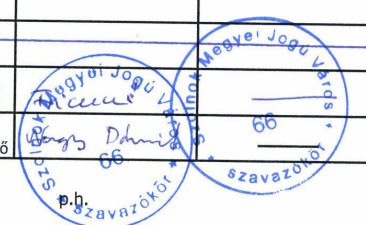 Szolnok Megyei Jogú Város
66
* szavazókör *
Szolnok Megyei Jogú Város
66
* szavazókör *
ő
p.h.